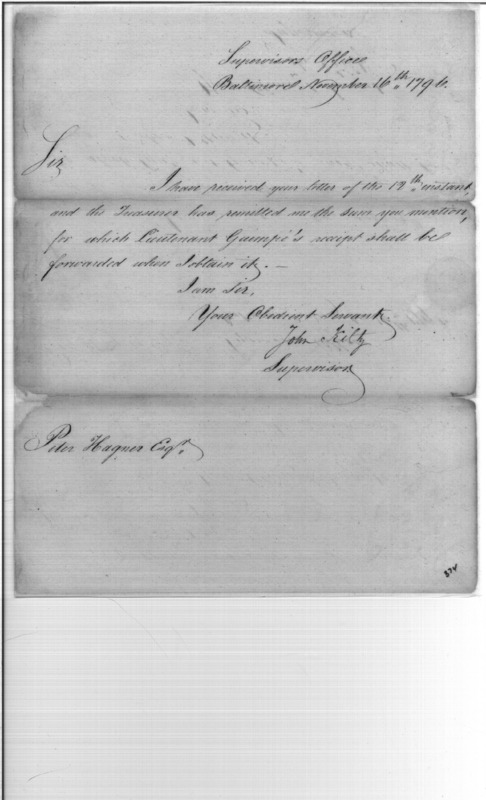 Supervisors Office
Baltimore November 16th 1796.
Sir
I have received your letter of the 12th instant
and the Treasurer has remitted me the sum you mention,
for which Lieutenant Guimpé's receipt shall be
forwarded when I obtain it. —
I am Sir,
Your Obedient Servant
John Kilty
Supervisor
Peter Hagner Esqr.